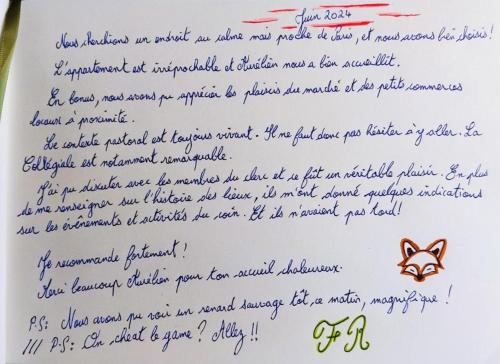 Juin 2024
Nous cherchions un endroit au calme mais proche de Paris, et nous avons bien choisi !
L'appartement est irréprochable et Aurélien nous a bien accueillit.
En bonus, nous avons pu apprécier les plaisirs du marché et des petits commerces
locaux à proximité.
Le contexte pastoral est toujours vivant. Il ne faut donc pas hésiter à y aller. La
Collégiale est notamment remarquable.
J'ai pu discuter avec les membres du clerc et ce fût un véritable plaisir. En plus
de me renseigner sur l'histoire des lieux, ils m'ont donné quelques indications
sur les évênements et activités du coin. Et ils n'avaient pas tord !
Je recommande fortement !
Merci beaucoup Aurélien pour ton accueil chaleureux.
P.S : Nous avons pu voir un renard sauvage tôt, ce matin, magnifique !
/// P.S : On cheat le game ? Allez !!
FR